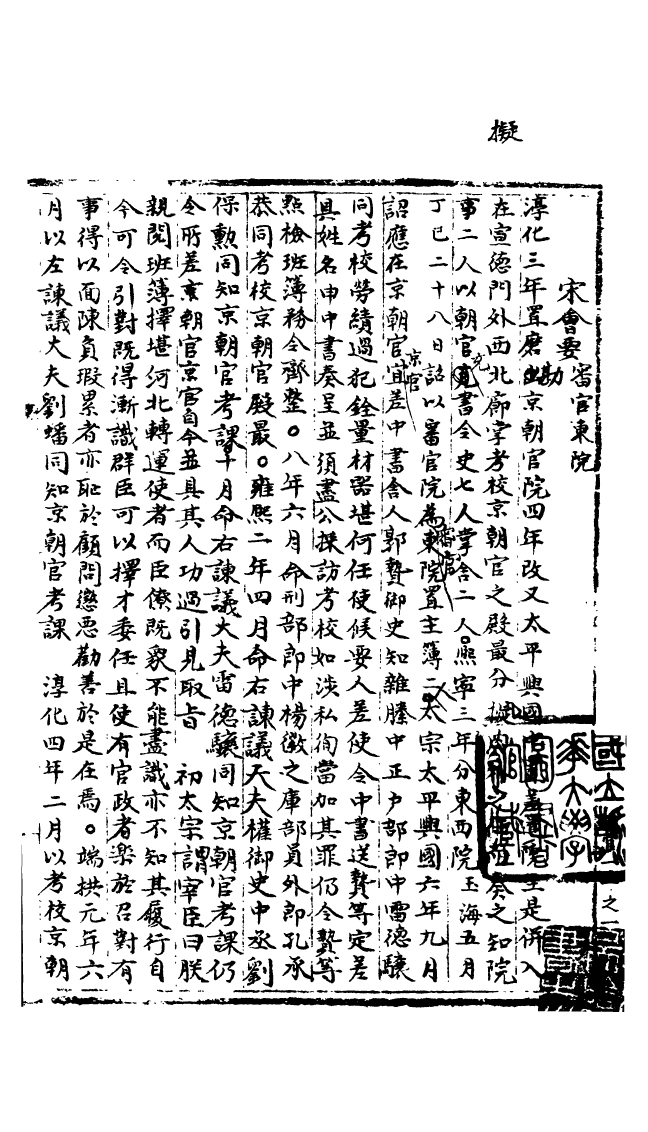 擬
宋會要 審官東院
淳化三年置磨勘京朝官院四年改又太平興國中置差遣院至是併入
在宣德門外西北廊掌考校京朝官之殿最分擬內外之任而奏之知院
事二人以朝官充書令史七人掌舍二人熙寧三年分東西院玉海五月
丁巳二十八日詔以審官院為審官東院置主簿二人太宗太平興國六年九月
詔應在京朝官京官宜差中書舍人郭贄御史知雜滕中正戶部郎中雷德驤
同考校勞績過犯銓量材器堪何任使候要人差使令中書送贄等定差
具姓名申中書奏呈並須盡公採訪考校如涉私徇當加其罪仍令贄等
點檢班簿務令齊整。八年六月命刑部郎中楊徽之庫部員外郎孔承
恭同考校京朝官殿最。雍熙二年四月命右諫議大夫權御史中丞劉
保勳同知京朝官考課十月命右諫議大夫雷德驤同知京朝官考課仍
令所差京朝官京官自今並具其人功過引見取旨 初太宗謂宰臣曰朕
親閱班簿擇堪河北轉運使者而臣僚既眾不能盡識亦不知其履行自
今可令引對既得漸識群臣可以擇才委任且使有官政者樂於召對有
事得以面陳負瑕累者亦恥於顧問懲惡勸善於是在焉。端拱元年六
月以左諫議大夫劉蟠同知京朝官考課 淳化四年二月以考校京朝
之一